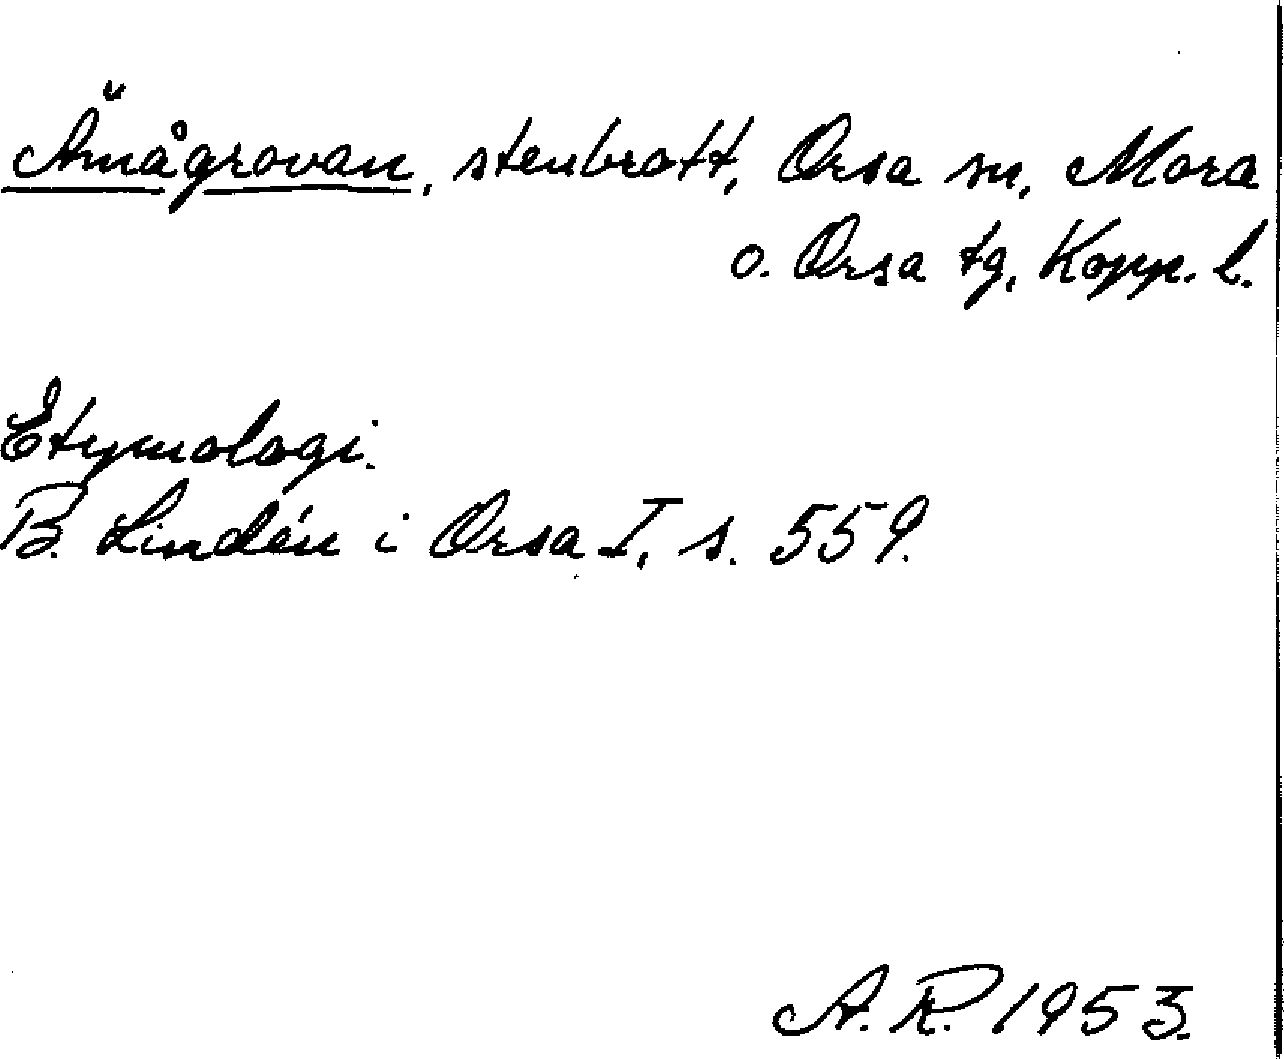 Ämågrovan, stenbrott, Orsa sn, Mora
o. Orsa tg, Kopp. l.
Etymologi.
B. Lindén i Orsa I, s. 559.
A. R. 1953.